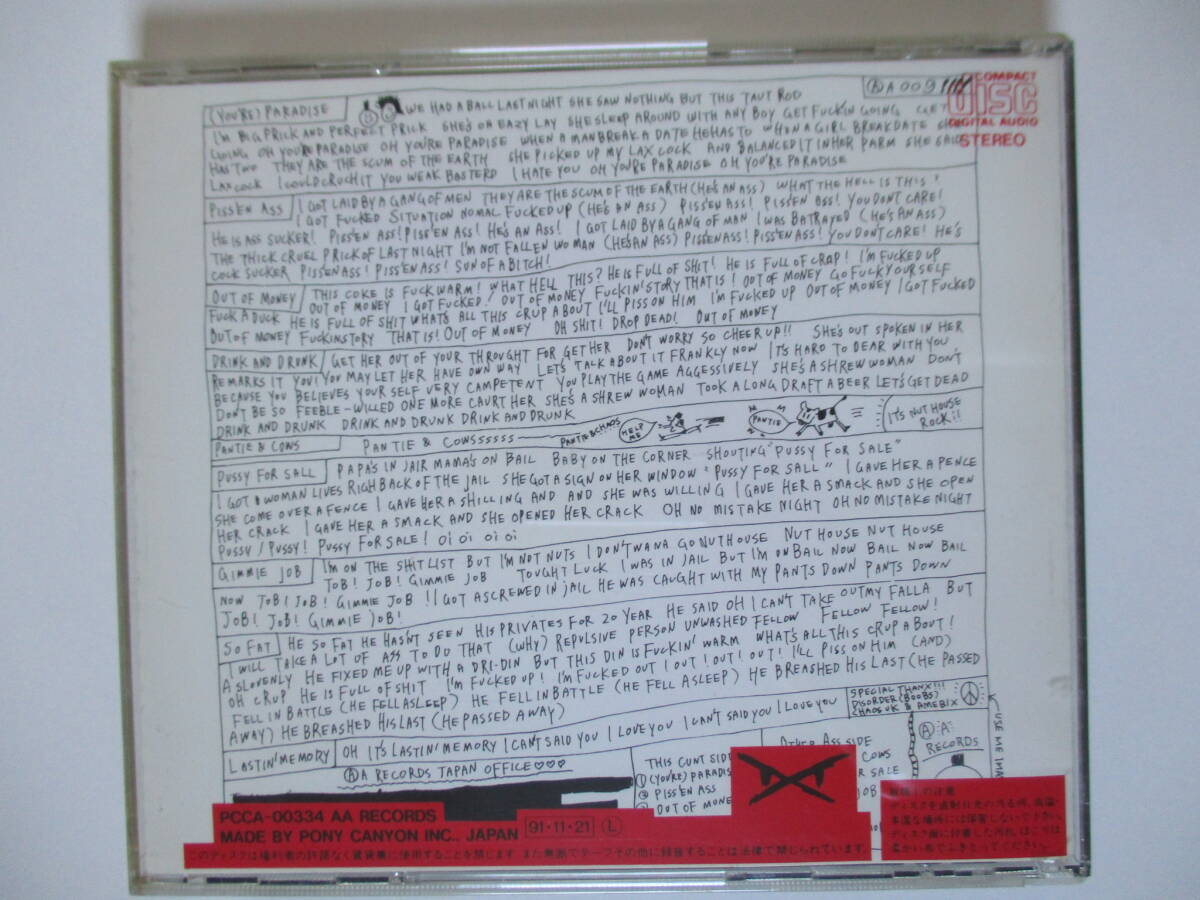 (YOU'RE) PARADISE WE HAD A BALL LAST NIGHT SHE SAW NOTHING BUT THIS TAUT ROD
Ⓐ A 009
COMPACT
DISC
DIGITAL AUDIO
STEREO
I'M BIG PRICK AND PERFECT PRICK SHE'S OR EAZY LAY SHE SLEEP AROUND WITH ANY BOY GET FUCKIN GOING GET
GOING OH YOU'RE PARADISE OH YOU'RE PARADISE WHEN A MAN BREAK A DATE HE HAS TO WHEN A GIRL BREAK DATE SHE
HAS TWO THEY ARE THE SCUM OF THE EARTH SHE PICKED UP MY LAX COCK AND BALANCED IT IN HER PARM SHE SAID
LAX COCK I COULD CRUCH IT YOU WEAK BASTERD I HATE YOU OH YOU'RE PARADISE OH YOU'RE PARADISE
PISS'EN ASS I GOT LAID BY A GANG OF MEN THEY ARE THE SCUM OF THE EARTH (HE'S AN ASS) WHAT THE HELL IS THIS!
I GOT FUCKED SITUATION NOMAL FUCKED UP (HE'S AN ASS) PISS'EN ASS! PISS'EN ASS! YOU DON'T CARE!
HE IS ASS SUCKER! PISS'EN ASS! PISS'EN ASS! HE'S AN ASS! I GOT LAID BY A GANG OF MAN I WAS BATRAYED (HE'S AN ASS)
THE THICK CRUEL PRICK OF LAST NIGHT I'M NOT FALLEN WOMAN (HE'S AN ASS) PISS'EN ASS! PISS'EN ASS! YOU DON'T CARE! HE'S
COCK SUCKER PISS'EN ASS! PISS'EN ASS! SUN OF A BITCH!
OUT OF MONEY THIS COKE IS FUCK WARM! WHAT HELL THIS? HE IS FULL OF SHIT! HE IS FULL OF CRAP! I'M FUCKED UP
OUT OF MONEY I GOT FUCKED! OUT OF MONEY FUCKIN' STORY THAT IS! OUT OF MONEY GO FUCK YOURSELF
FUCK A DUCK HE IS FULL OF SHIT WHAT'S ALL THIS CRUP ABOUT I'LL PISS ON HIM I'M FUCKED UP OUT OF MONEY I GOT FUCKED
OUT OF MONEY FUCKIN STORY THAT IS! OUT OF MONEY OH SHIT! DROP DEAD! OUT OF MONEY
DRINK AND DRUNK GET HER OUT OF YOUR THROUGHT FOR GET HER DON'T WORRY SO CHEER UP!! SHE'S OUT SPOKEN IN HER
REMARKS IT YOU! YOU MAY LET HER HAVE OWN WAY LET'S TALK ABOUT IT FRANKLY NOW IT'S HARD TO DEAR WITH YOU
BECAUSE YOU BELIEVES YOUR SELF VERY CAMPETENT YOU PLAY THE GAME AGGESSIVELY SHE'S A SHREW WOMAN DON'T
DON'T BE SO FEEBLE-WILLED ONE MORE CAVRT HER SHE'S A SHREW WOMAN TOOK A LONG DRAFT A BEER LET'S GET DEAD
DRINK AND DRUNK DRINK AND DRUNK DRINK AND DRUNK
PANTIE & COWS PANTIE & COWSSSSSS PANTIE & CHAOS HELP ME PANTIE IT'S NUT HOUSE ROCK!!
PUSSY FOR SALL PAPA'S IN JAIR MAMA'S ON BAIL BABY ON THE CORNER SHOUTING "PUSSY FOR SALE"
I GOT A WOMAN LIVES RIGH BACK OF THE JAIL SHE GOT A SIGN ON HER WINDOW "PUSSY FOR SALL" I GAVE HER A PENCE
SHE COME OVER A FENCE I GAVE HER A SHILLING AND AND SHE WAS WILLING I GAVE HER A SMACK AND SHE OPEN
HER CRACK I GAVE HER A SMACK AND SHE OPENED HER CRACK OH NO MISTAKE NIGHT OH NO MISTAKE NIGHT
PUSSY! PUSSY! PUSSY FOR SALE! OI OI OI OI
GIMMIE JOB I'M ON THE SHIT LIST BUT I'M NOT NUTS I DON'T WANA GO NUTHOUSE NUT HOUSE NUT HOUSE
JOB! JOB! GIMMIE JOB TOUGHT LUCK I WAS IN JAIL BUT I'M ON BAIL NOW BAIL NOW BAIL
NOW JOB! JOB! GIMMIE JOB!! I GOT A SCREWED IN JAIL HE WAS CAUGHT WITH MY PANTS DOWN PANTS DOWN
JOB! JOB! GIMMIE JOB!
SO FAT HE SO FAT HE HASN'T SEEN HIS PRIVATES FOR 20 YEAR HE SAID OH I CAN'T TAKE OUT MY FALLA BUT
I WILL TAKE A LOT OF ASS TO DO THAT (WHY) REPULSIVE PERSON UNWASHED FELLOW FELLOW FELLOW!
A SLOVENLY HE FIXED ME UP WITH A DRI-DIN BUT THIS DIN IS FUCKIN' WARM WHAT'S ALL THIS CRUP ABOUT!
OH CRUP HE IS FULL OF SHIT I'M FUCKED UP! I'M FUCKED OUT! OUT! OUT! OUT! I'LL PISS ON HIM (AND)
FELL IN BATTLE (HE FELL ASLEEP) HE FELL IN BATTLE (HE FELL ASLEEP) HE BREASHED HIS LAST (HE PASSED
AWAY) HE BREASHED HIS LAST (HE PASSED AWAY)
LASTIN' MEMORY OH IT'S LASTIN' MEMORY I CAN'T SAID YOU I LOVE YOU I CAN'T SAID YOU I LOVE YOU
SPECIAL THANX!!!
DISORDER (BOOBS)
CHAOS UK & AMEBIX
Ⓐ A RECORDS JAPAN OFFICE♡♡♡
THIS CUNT SIDE
① (YOU'RE) PARADIS
② PISS'EN ASS
③ OUT OF MONE
OTHER ASS SIDE
COWS
R SALE
JOB
Ⓐ A
RECORDS
USE ME
PCCA-00334 AA RECORDS
MADE BY PONY CANYON INC., JAPAN 91・11・21 Ⓛ
このディスクは権利者の許諾なく賃貸業に使用することを禁じます。また無断でテープその他に録音することは法律で禁じられています。